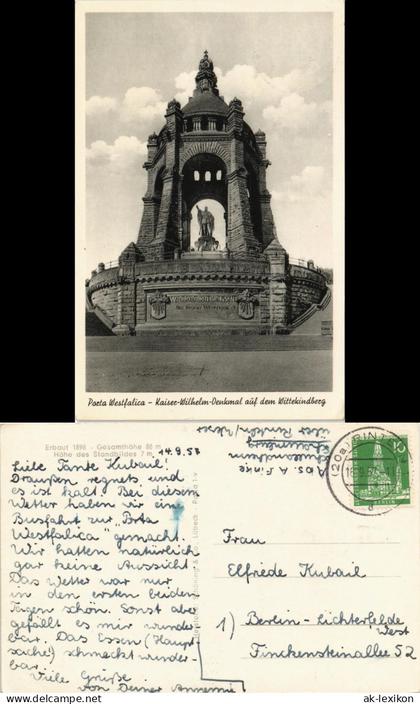 Porta Westfalica – Kaiser-Wilhelm-Denkmal auf dem Wittekindberg
Erbaut 1896 - Gesamthöhe 88 m
Höhe des Standbildes 7 m
14.9.57
Liebe Tante Kubail!
Draußen regnets und
es ist kalt. Bei diesem
Wetter haben wir eine
Busfahrt zur „Porta
Westfalica" gemacht.
Wir hatten natürlich
gar keine Aussicht.
Das Wetter war nur
in den ersten beiden
Tagen schön. Sonst aber
gefällt es mir wunder-
bar. Das Essen (Haupt-
sache!) schmeckt wunder-
bar.
Viele Grüße
von Deiner Annemie
Abs. A.
über Rinteln/Weser
(20a) RINT
10
BERLIN
Frau
Elfriede Kubail
1) Berlin-Lichterfelde
West
Finckensteinallee 52
ak-lexikon.de